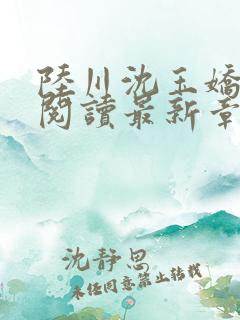 陸川沈玉嬌
閱讀最新章
沈靜思
未任同意禁止轉載